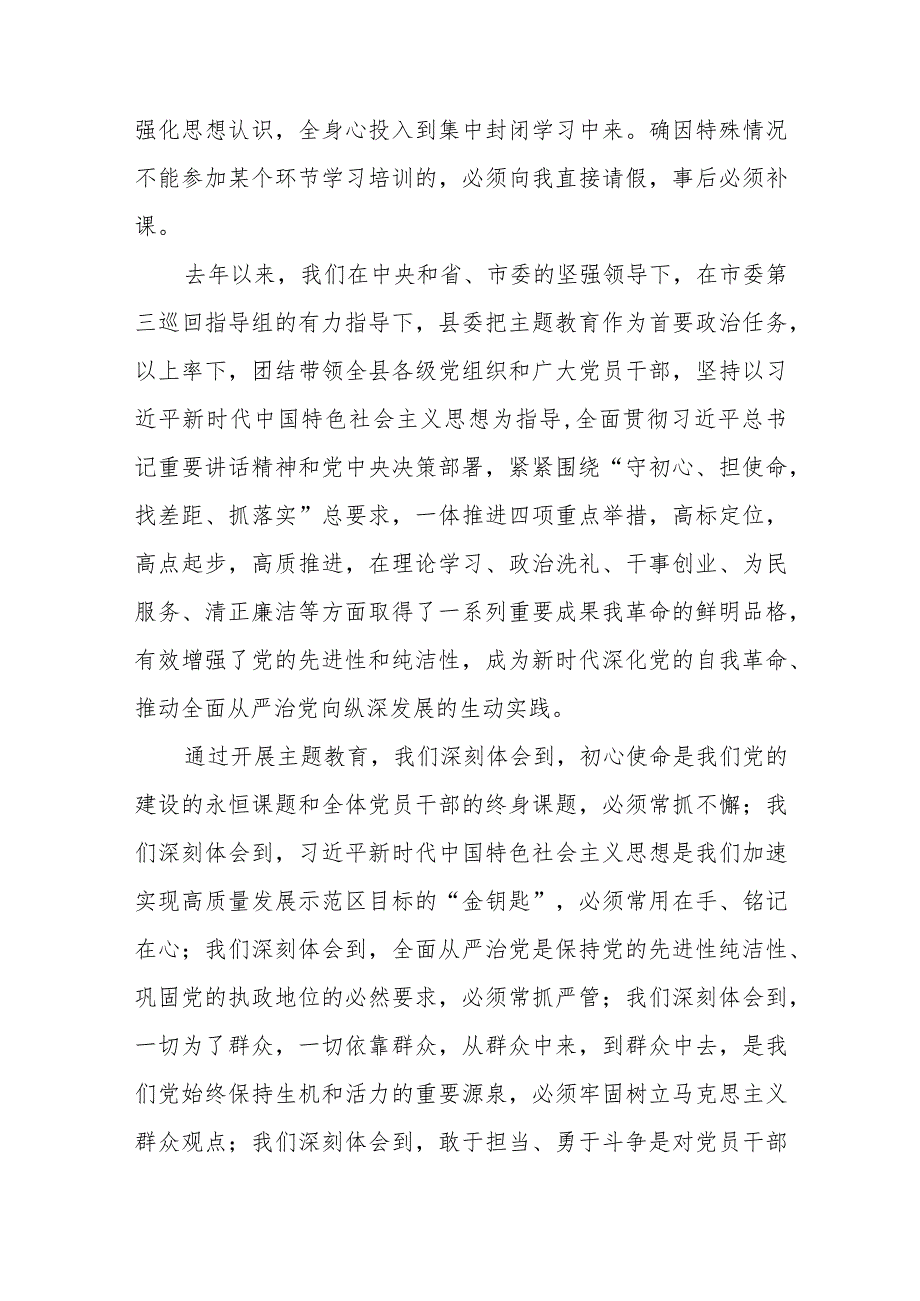 强化思想认识，全身心投入到集中封闭学习中来。确因特殊情况
不能参加某个环节学习培训的，必须向我直接请假，事后必须补
课。
去年以来，我们在中央和省、市委的坚强领导下，在市委第
三巡回指导组的有力指导下，县委把主题教育作为首要政治任务，
以上率下，团结带领全县各级党组织和广大党员干部，坚持以习
近平新时代中国特色社会主义思想为指导,全面贯彻习近平总书
记重要讲话精神和党中央决策部署，紧紧围绕“守初心、担使命，
找差距、抓落实”总要求，一体推进四项重点举措，高标定位，
高点起步，高质推进，在理论学习、政治洗礼、干事创业、为民
服务、清正廉洁等方面取得了一系列重要成果我革命的鲜明品格，
有效增强了党的先进性和纯洁性，成为新时代深化党的自我革命、
推动全面从严治党向纵深发展的生动实践。
通过开展主题教育，我们深刻体会到，初心使命是我们党的
建设的永恒课题和全体党员干部的终身课题，必须常抓不懈；我
们深刻体会到，习近平新时代中国特色社会主义思想是我们加速
实现高质量发展示范区目标的“金钥匙”，必须常用在手、铭记
在心；我们深刻体会到，全面从严治党是保持党的先进性纯洁性、
巩固党的执政地位的必然要求，必须常抓严管；我们深刻体会到，
一切为了群众，一切依靠群众，从群众中来，到群众中去，是我
们党始终保持生机和活力的重要源泉，必须牢固树立马克思主义
群众观点；我们深刻体会到，敢于担当、勇于斗争是对党员干部